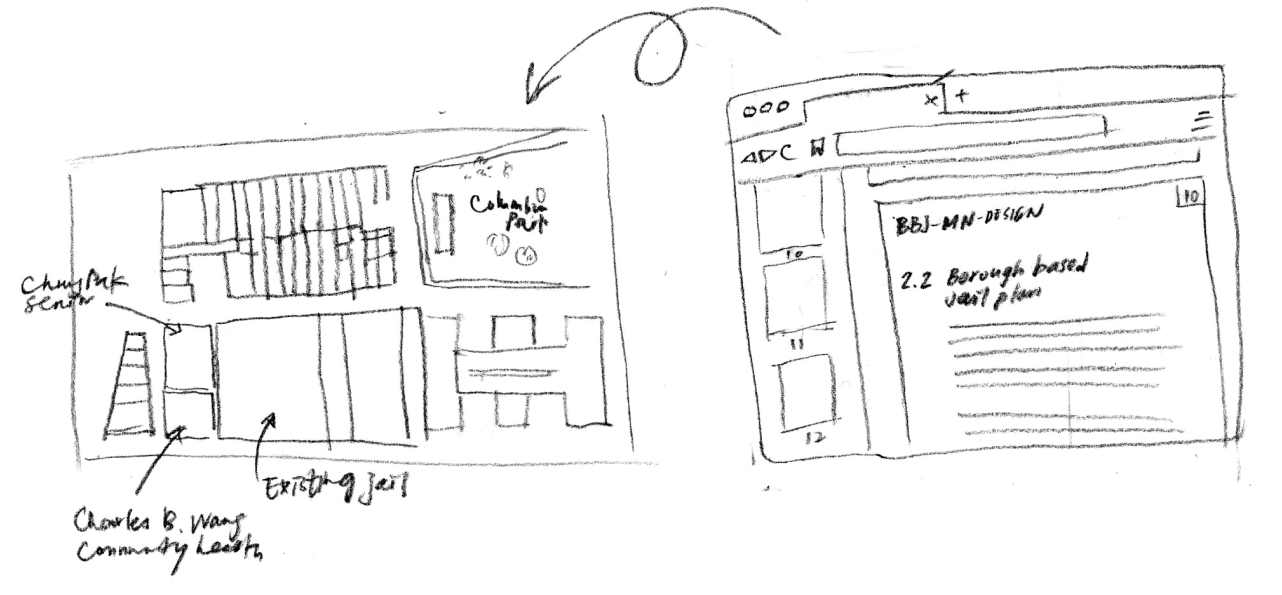 Columbia
Park
Chung Pak
Senior
Existing jail
Charles B. Wang
Community health
x +
C
10
BBJ-MN-DESIGN
2.2 Borough based
jail plan
10
11
12